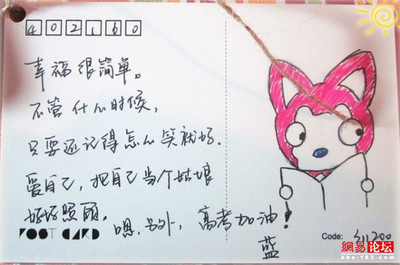 402160
幸福很简单。
不管什么时候，
只要还记得怎么笑就好.
爱自己，把自己当个姑娘
好好照顾。
嗯，另外，高考加油！
蓝
FOOT CARD
Code: 311200
網易论坛
bbs.163.com